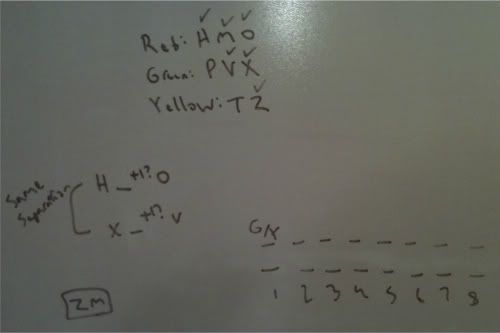 Red: H M O
Green: P V X
Yellow: T Z
Same Separation
H _ +1? O
X _ +1? V
ZM
G/Y
1 2 3 4 5 6 7 8